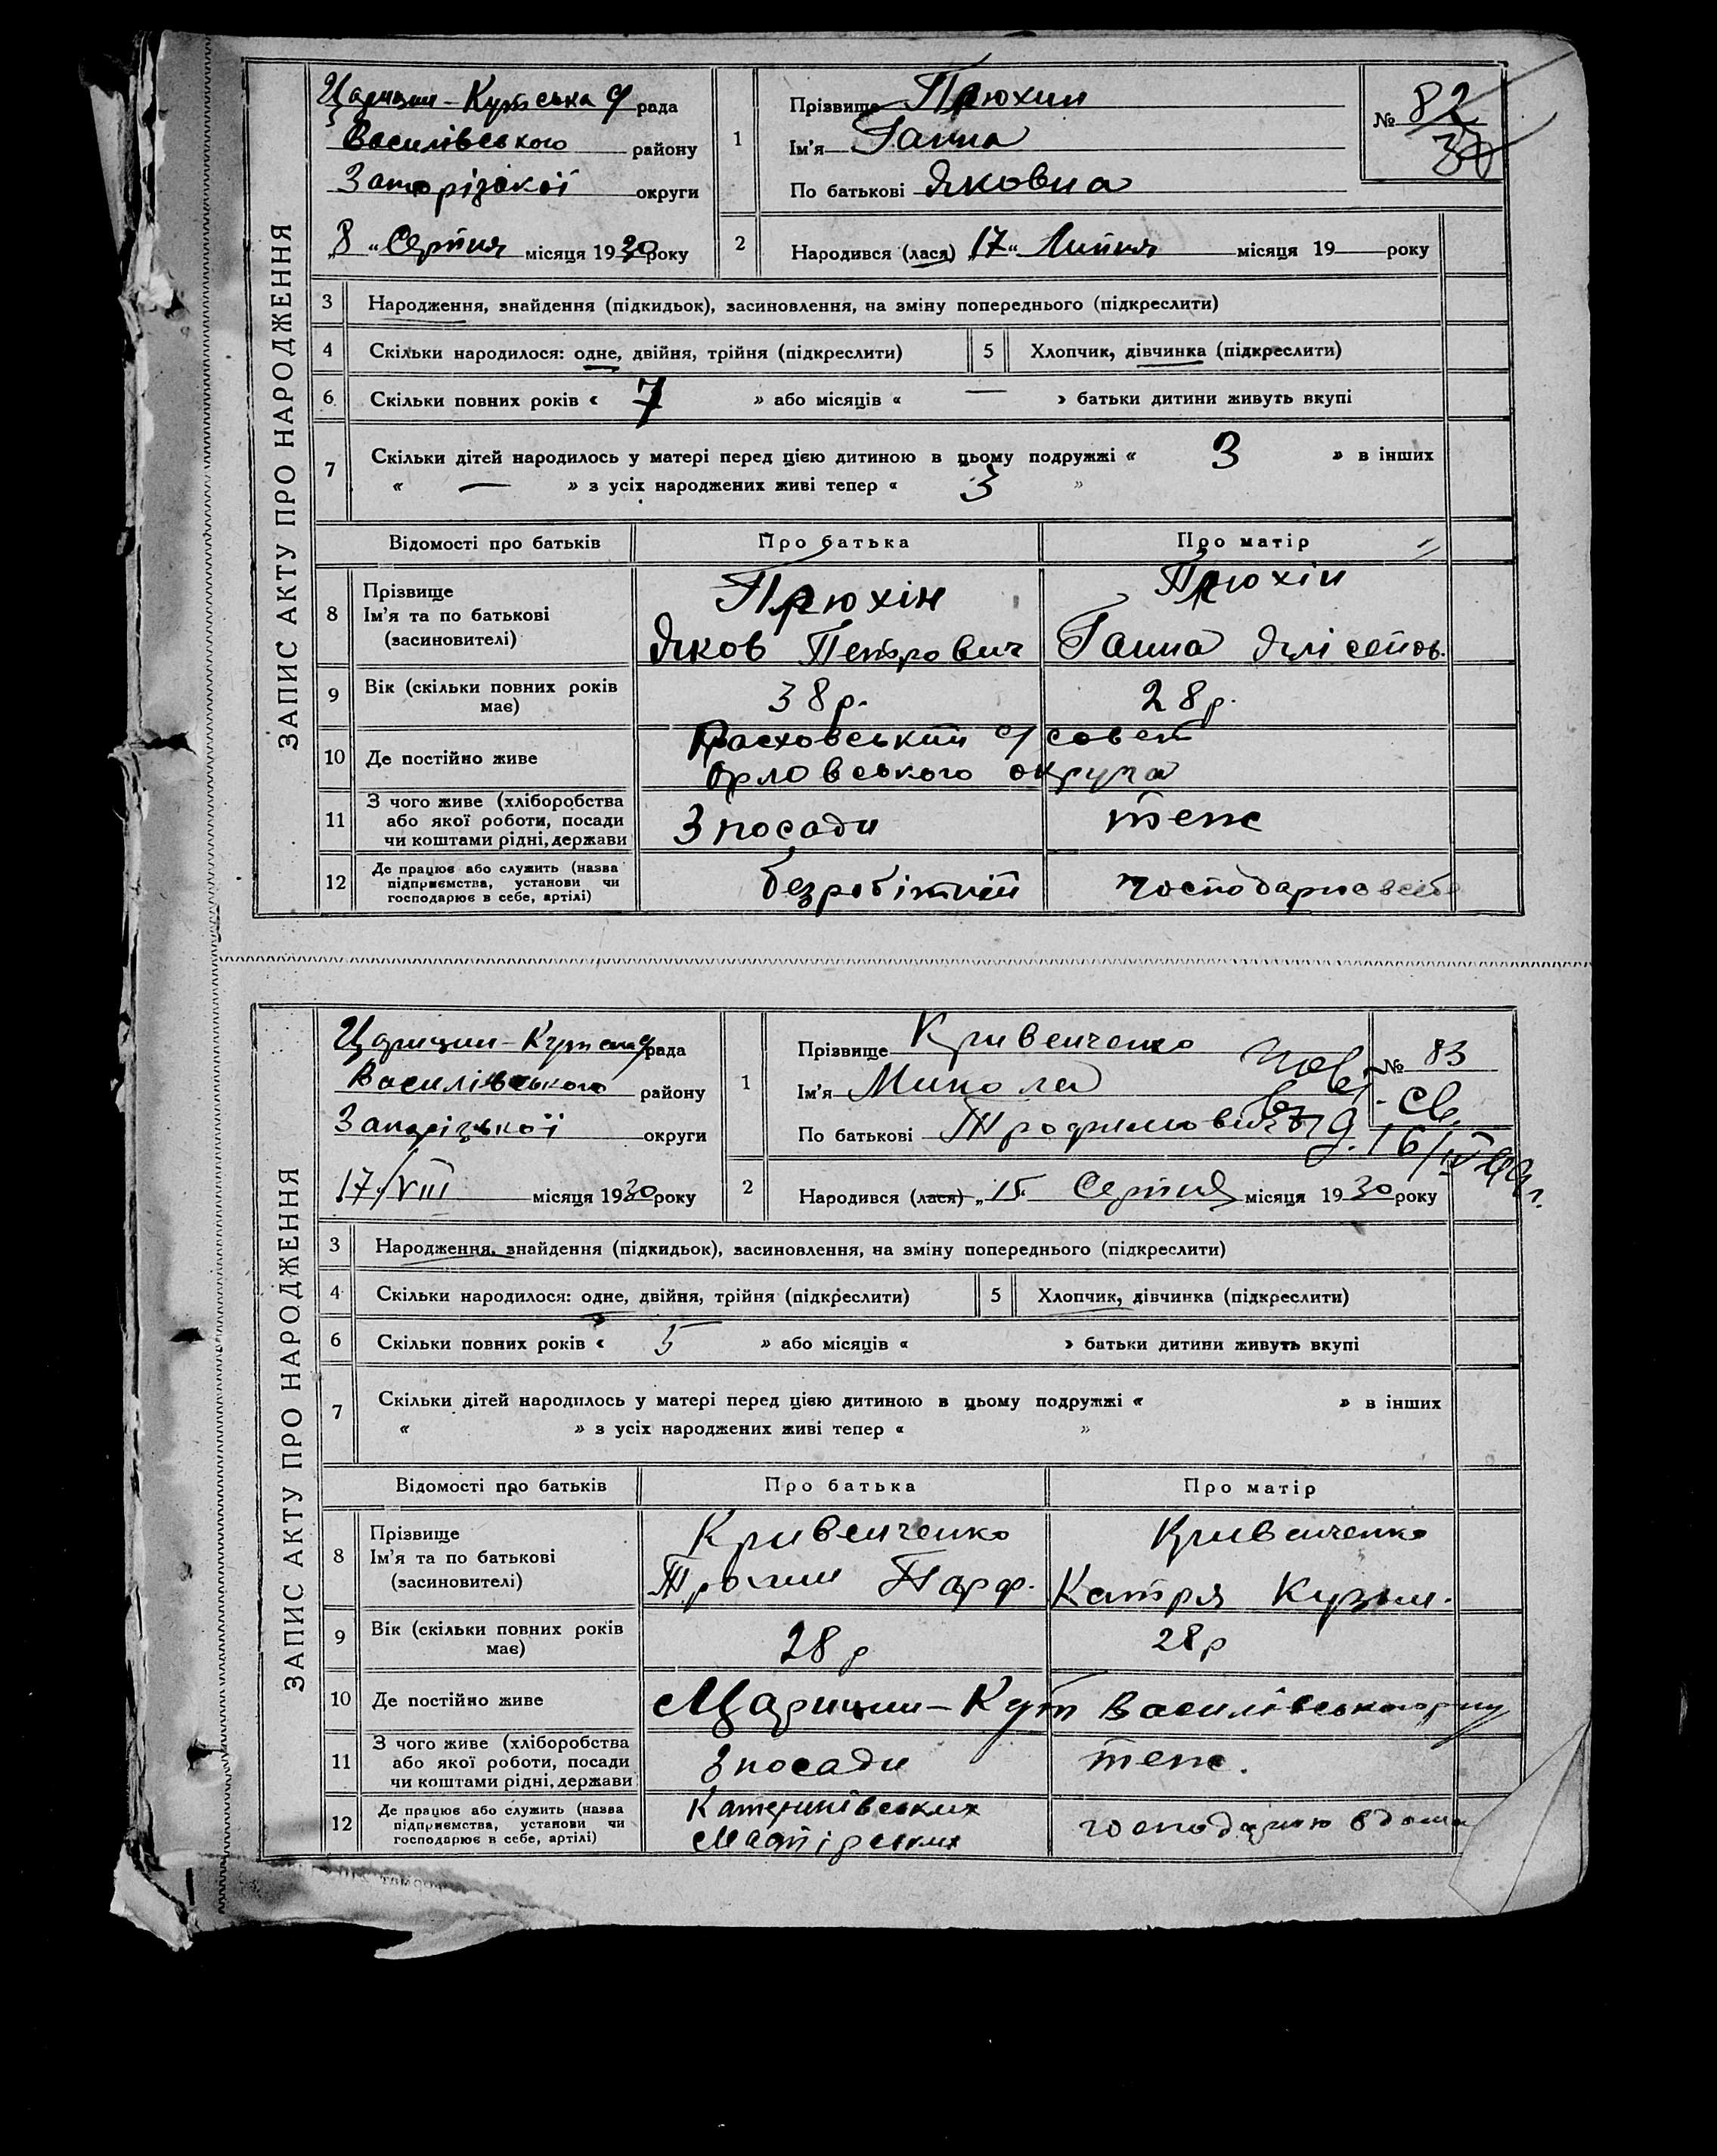 ЗАПИС АКТУ ПРО НАРОДЖЕННЯ
Царицин-Кутська с/рада
Василівського району
Запорізької округи
„8" Серпня місяця 1930 року
1 Прізвище Прюхин
Ім'я Ганна
По батькові Яковна
№ 82
30
2 Народився (лася) „17" Липня місяця 19 року
3 Народження, знайдення (підкидьок), засиновлення, на зміну попереднього (підкреслити)
4 Скільки народилося: одне, двійня, трійня (підкреслити) 5 Хлопчик, дівчинка (підкреслити)
6 Скільки повних років « 7 » або місяців « — » батьки дитини живуть вкупі
7 Скільки дітей народилось у матері перед цією дитиною в цьому подружжі « 3 » в інших
« — » з усіх народжених живі тепер « 3 »
Відомості про батьків Про батька Про матір
8 Прізвище Прюхін Прюхін
Ім'я та по батькові
(засиновителі) Яков Петрович Ганна
9 Вік (скільки повних років має) 38 р. 28 р.
10 Де постійно живе с/совет
Орловського округа
11 З чого живе (хліборобства або якої роботи, посади чи коштами рідні, держави З посади теж
12 Де працює або служить (назва підприємства, установи чи господарює в себе, артілі) безробітній господарює в себе
ЗАПИС АКТУ ПРО НАРОДЖЕННЯ
Царицин-Кутська с/рада
Василівського району
Запорізької округи
17/VIII місяця 1930 року
1 Прізвище Кривенченко
Ім'я Микола
По батькові Трофимович
№ 83
Пов. св.
16/IV
2 Народився (лася) „15" Серпня місяця 1930 року
3 Народження, знайдення (підкидьок), засиновлення, на зміну попереднього (підкреслити)
4 Скільки народилося: одне, двійня, трійня (підкреслити) 5 Хлопчик, дівчинка (підкреслити)
6 Скільки повних років « 5 » або місяців « » батьки дитини живуть вкупі
7 Скільки дітей народилось у матері перед цією дитиною в цьому подружжі « » в інших
« » з усіх народжених живі тепер « »
Відомості про батьків Про батька Про матір
8 Прізвище Кривенченко Кривенченко
Ім'я та по батькові
(засиновителі) Трохим Парф. Катря Кузьм.
9 Вік (скільки повних років має) 28 р 28 р
10 Де постійно живе Царицин-Кут Василівського р-ну
11 З чого живе (хліборобства або якої роботи, посади чи коштами рідні, держави З посади теж.
12 Де працює або служить (назва підприємства, установи чи господарює в себе, артілі) господарює вдома